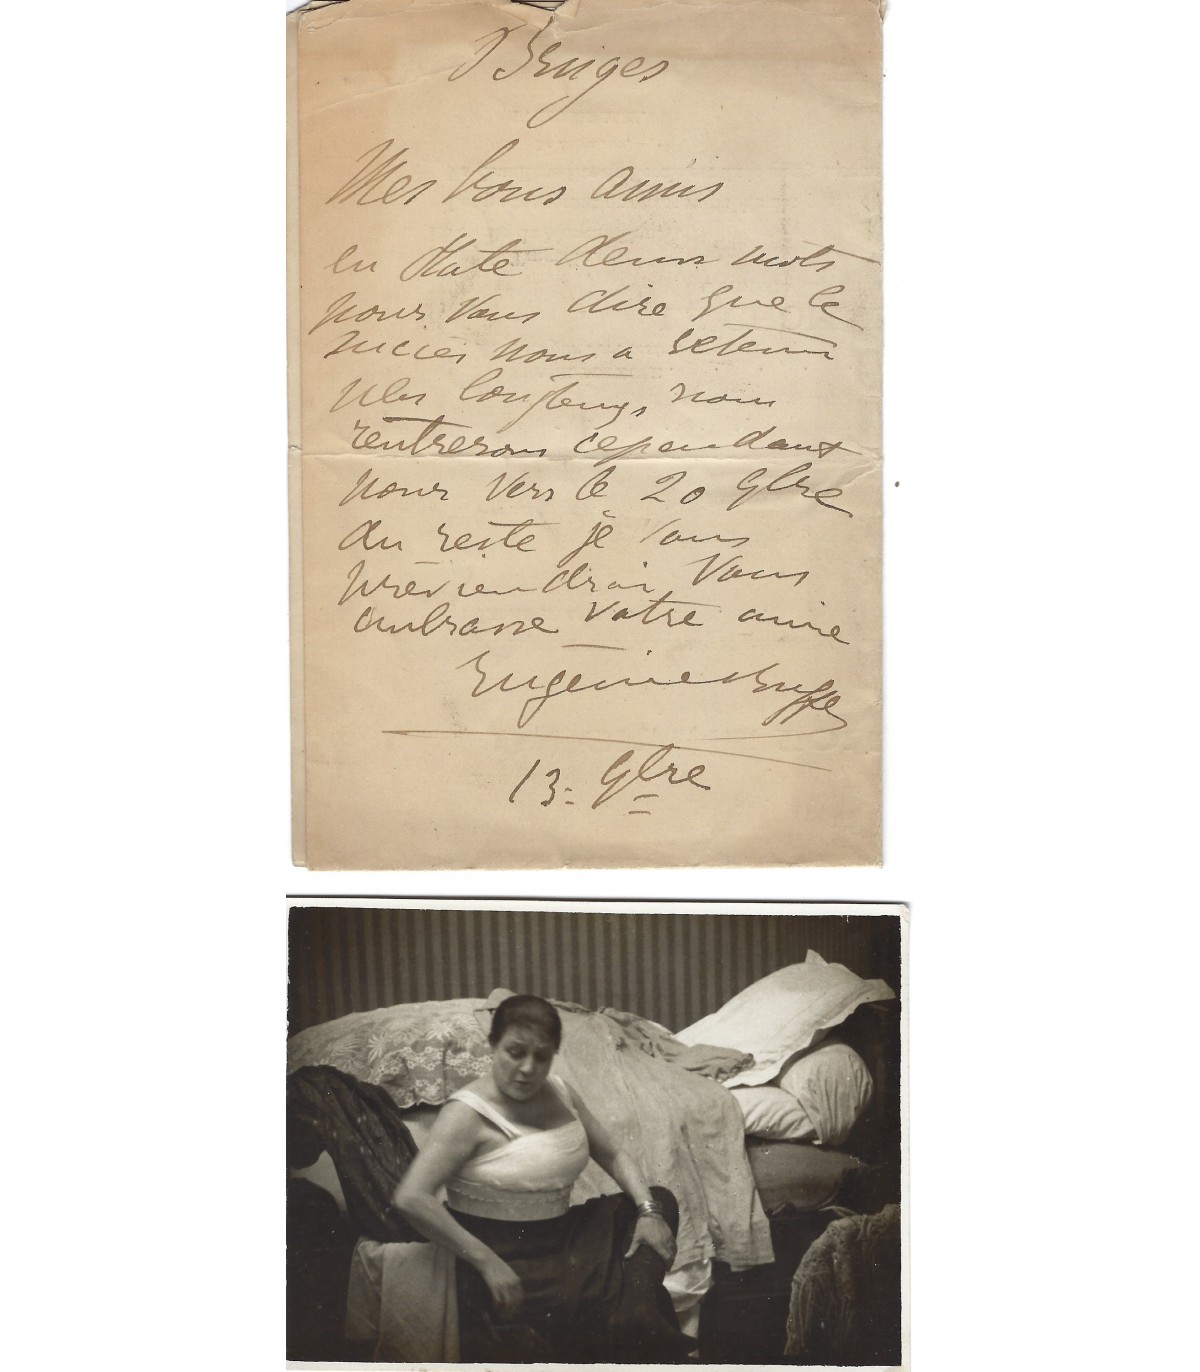 Bruges
Mes bons amis
en hate deux mots
pour vous dire que le
succès nous a retenu
plus longtemps, nous
rentrerons cependant
pour vers le 20 9bre
du reste je vous
préviendrai Vous
embrasse votre amie
Eugénie Buffet
13= 9bre